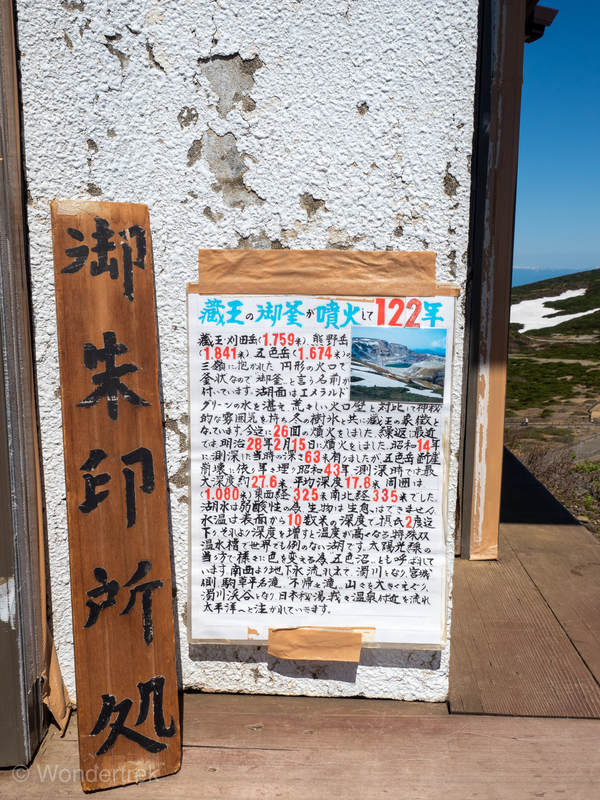 御朱印所処
蔵王の御釜が噴火して122年
蔵王・刈田岳(1.759米)熊野岳
(1.841米)五色岳(1.674米)の
三嶺に抱かれた円形の火口で
釜状なので御釜と言う名前が
付いています。湖面はエメラルド
グリーンの水を湛え荒々しい火口壁と対比して神秘
的な雰囲気を持ち冬の樹氷と共に蔵王の象徴と
なっています。今迄に26回の噴火をしました。繰返し最近
では明治28年2月15日に噴火をしました。昭和14年
に測深した当時の深さ63米有りましたが五色岳断崖
崩壊に依り年々埋り昭和43年測深時では最
大深度約27.6米 平均深度17.8米 周囲は
(1.080米)東西経325米南北経335米でした。
湖水は弱酸性の為生物は生息はできません。
水温は表面から10数米の深度で摂氏2度迄
下りそれより深度を増すと温度が高くなる特殊双
温水槽で世界でも例のない湖です。太陽光線の
当り方で様々に色を変える為五色沼とも呼ばれて
います。南西より地下水流れ出て、濁川となり宮城
側駒草平名滝、不帰の滝、山々を大きくえぐり、
濁川渓谷となり日本秘湯峩々温泉付近を流れ
太平洋へと注がれていきます。
© Wondertrek